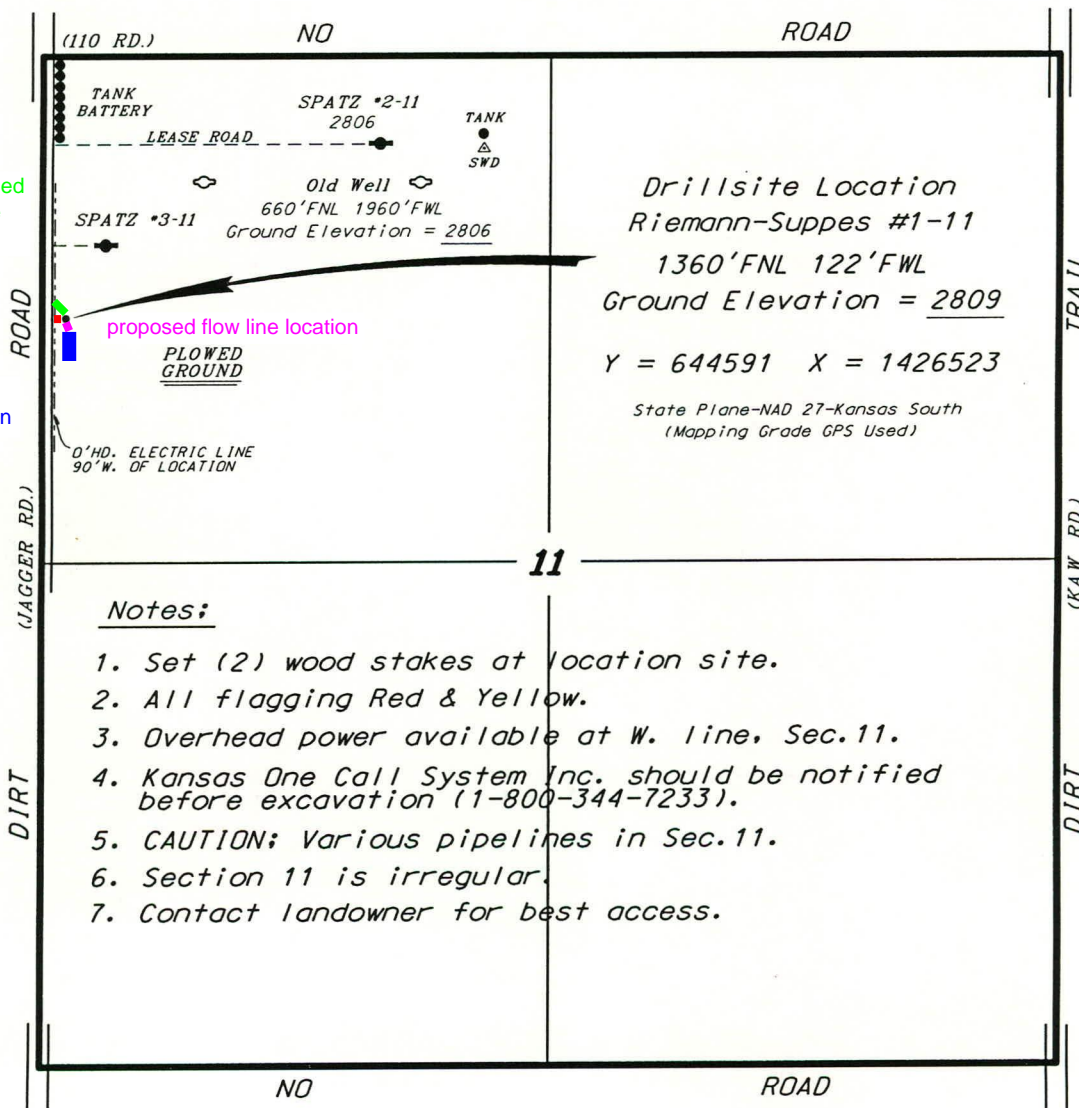 NO ROAD
(110 RD.)
TANK
BATTERY
SPATZ #2-11
2806
TANK
SWD
LEASE ROAD
Old Well
660'FNL 1960'FWL
Ground Elevation = 2806
SPATZ #3-11
ed
proposed flow line location
PLOWED
GROUND
n
O'HD. ELECTRIC LINE
90'W. OF LOCATION
Drillsite Location
Riemann-Suppes #1-11
1360'FNL 122'FWL
Ground Elevation = 2809
Y = 644591 X = 1426523
State Plane-NAD 27-Kansas South
(Mapping Grade GPS Used)
ROAD
(JAGGER RD.)
DIRT
TRAIL
(KAW RD)
DIRT
11
Notes:
1. Set (2) wood stakes at location site.
2. All flagging Red & Yellow.
3. Overhead power available at W. line, Sec.11.
4. Kansas One Call System Inc. should be notified
before excavation (1-800-344-7233).
5. CAUTION: Various pipelines in Sec.11.
6. Section 11 is irregular.
7. Contact landowner for best access.
NO ROAD